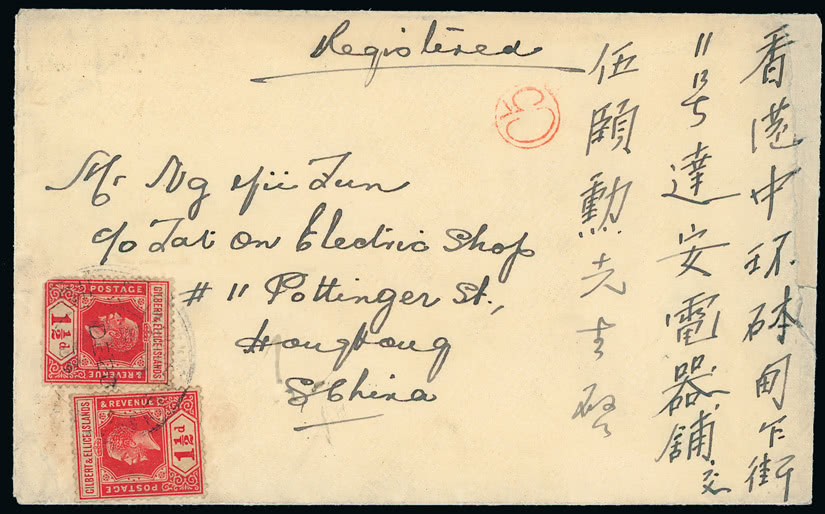 Registered
Mr Ng Yii Fun
c/o Tat On Electric Shop
# 11 Pottinger St.,
Hongkong
S. China
香港中环砵甸乍街
11号達安電器舖交
伍頤勳先生啓
POSTAGE
& REVENUE
GILBERT & ELLICE ISLANDS
1½d
1½d
DEC
GILBERT & ELLICE ISLANDS
& REVENUE
POSTAGE
1½d